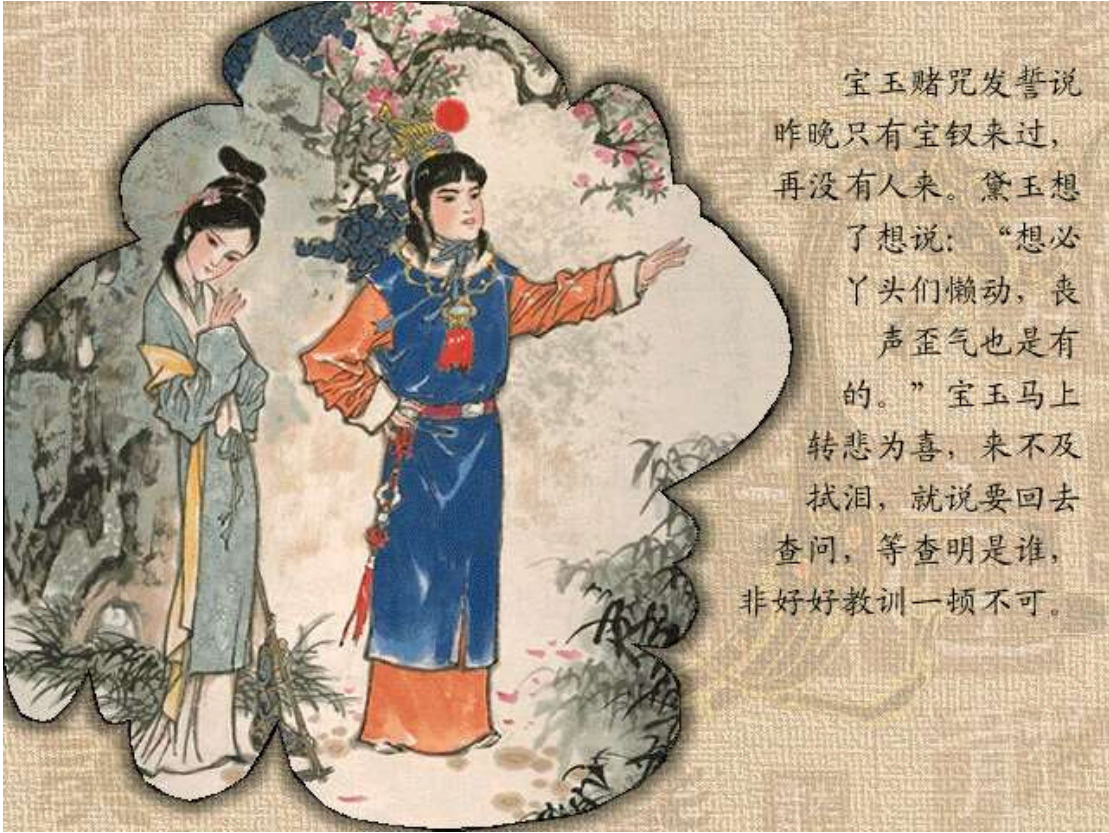 宝玉赌咒发誓说
昨晚只有宝钗来过，
再没有人来。黛玉想
了想说：“想必
丫头们懒动，丧
声歪气也是有
的。”宝玉马上
转悲为喜，来不及
拭泪，就说要回去
查问，等查明是谁，
非好好教训一顿不可。